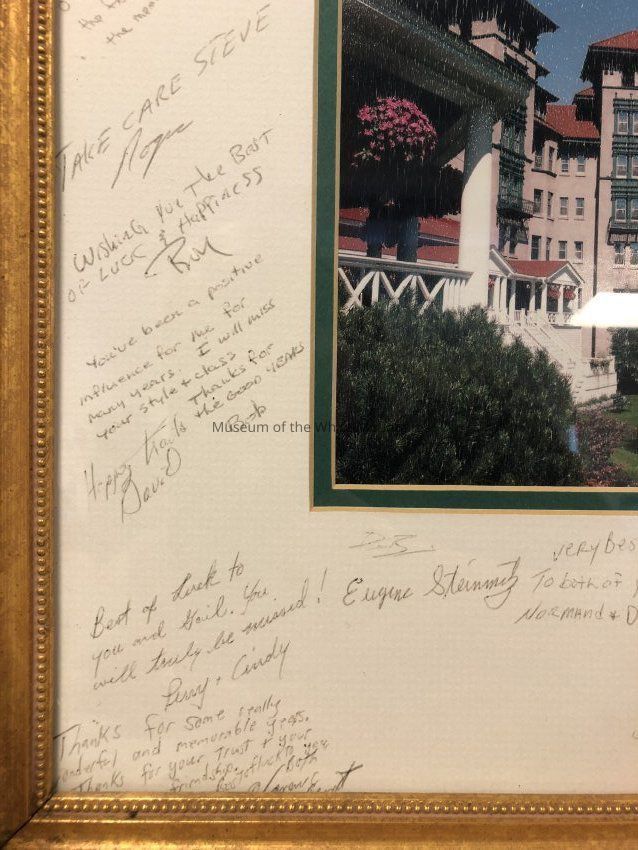 the
the mem
TAKE CARE STEVE
Roger
WISHING YOU THE BEST
OF LUCK & HAPPINESS
Bill
You've been a positive
influence for me for
many years. I will miss
your style + class
Thanks for
the GOOD YEARS
Bob
Happy trails
David
Museum of the Wh
Best of luck to
you and Gail. You
will truly be missed!
Perry + Cindy
Eugene Steinmitz
very Bes
To both of
NORMAND + D
Thanks for some really
wonderful and memorable years.
Thanks for your trust + your
friendship.
Best of luck to you
Both